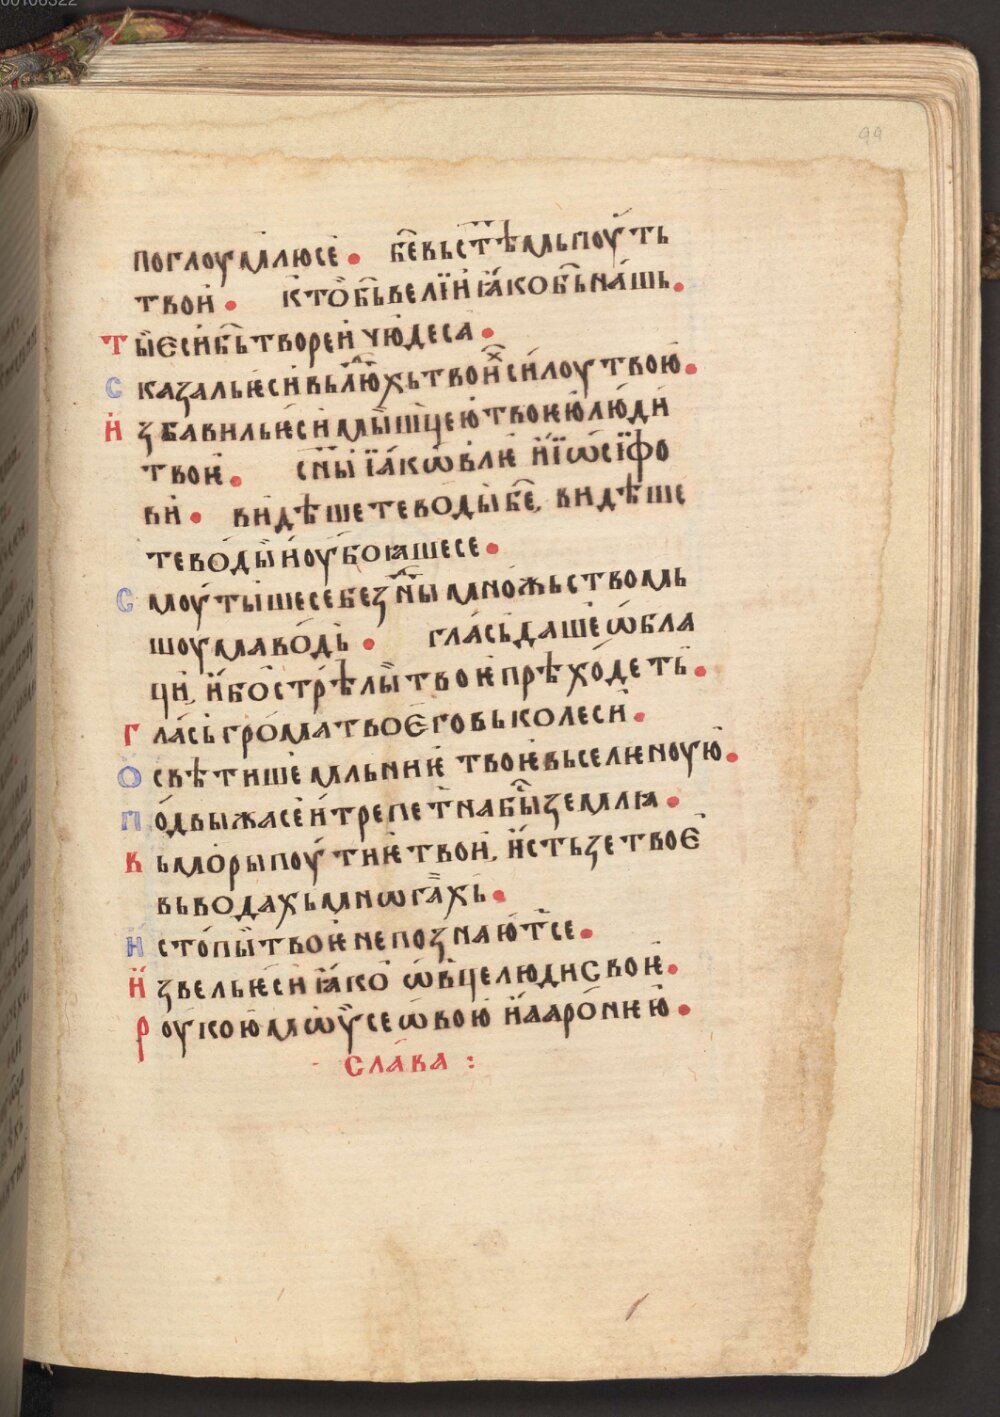 99
поглоумлюсе. бе҃ вь ст҃ѣмь поуть
твои. кто б҃ь велїи ꙗко б҃ь нашь.
Ты ѥси б҃ь твореи чюдеса.
Сказаль ѥси вь людⷯехь твоиⷯ силоу твою.
Избавиль ѥси мышцею твоѥю люди
твоѥ. сн҃ы їаковлѥ и їѡсїфо
ви. видѣше те воды бе҃, видѣше
те воды и оубоꙗшесе.
Смоутышесе безⷣны множьствомь
шоума водь. глась даше ѡбла
ци, ибо стрѣлы твоѥ прѣходеть.
Глась грома твоѥго вь колеси.
Освѣтише мльниѥ твоѥ вьселѥноую.
Подвыжасе и трепетⸯна бы землꙗ.
Вь моры поутиѥ твои, и стьзе твоѥ
вь водахь мнѡгахь.
И стопы твоѥ не познаютⸯсе.
Извель ѥси ꙗко ѡвце люди своѥ.
Роукою мѡусеѡвою и ааронѥю.
Слава :